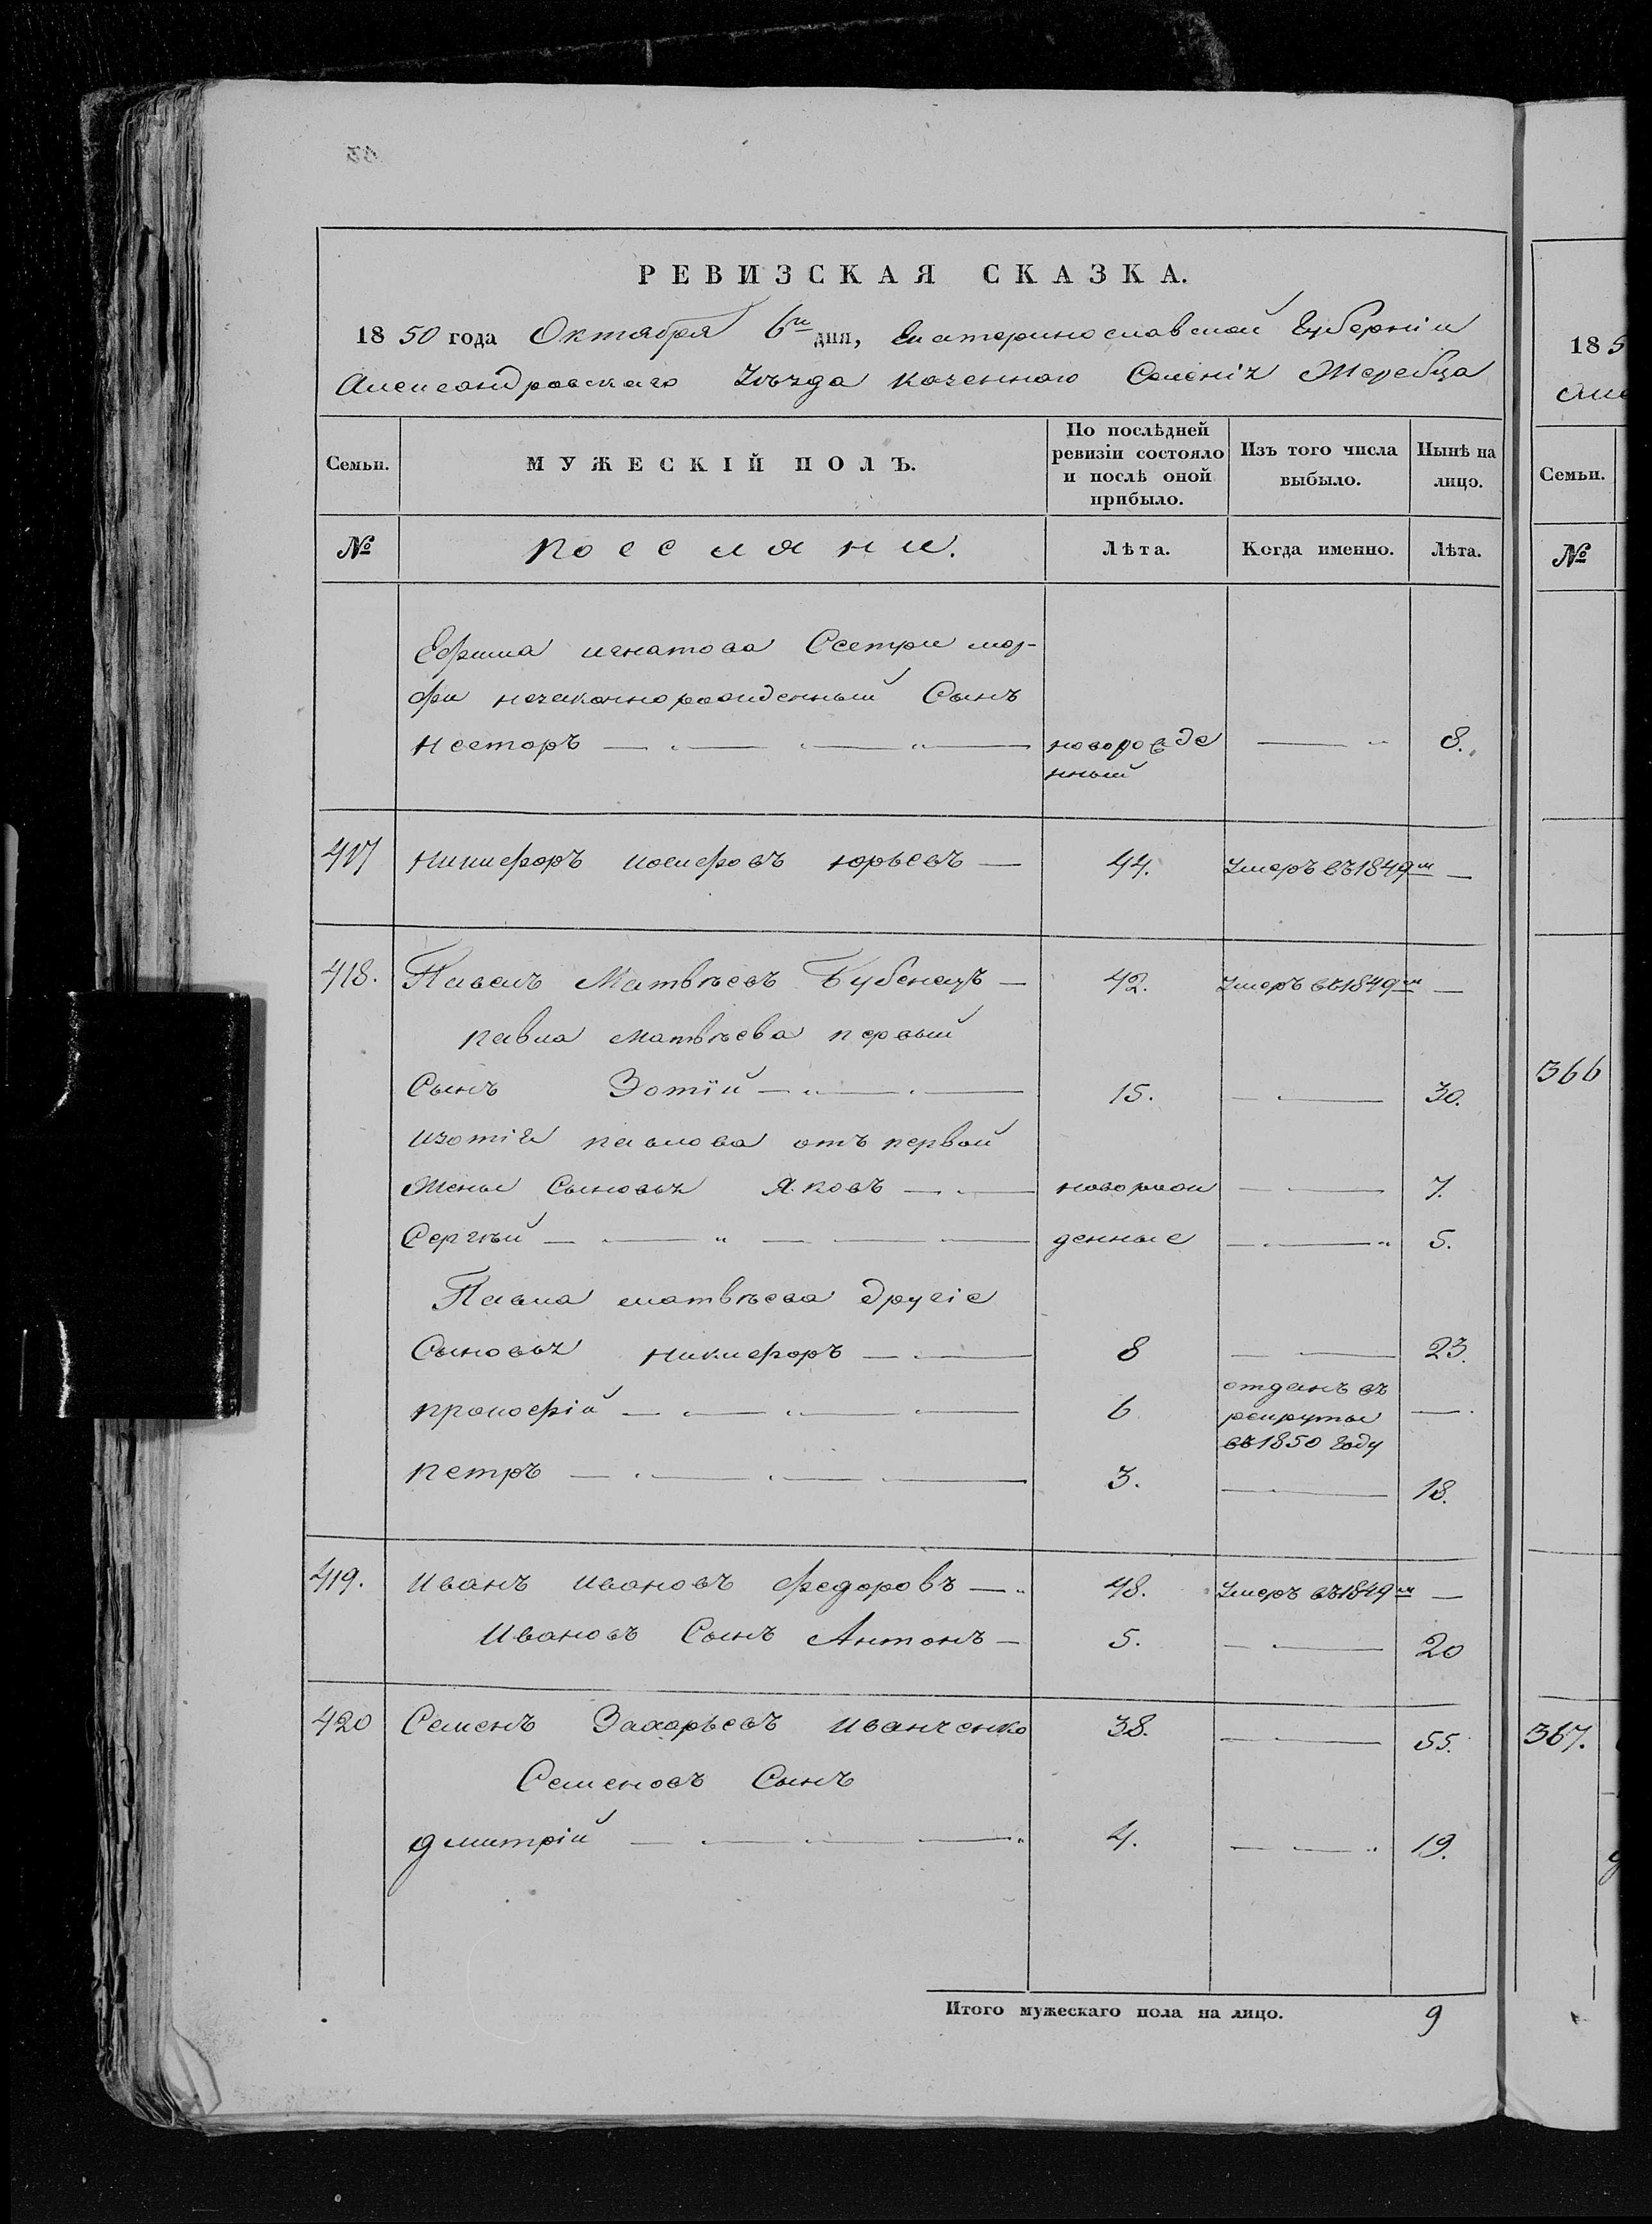 РЕВИЗСКАЯ СКАЗКА.
1850 года Октября 6го дня, Екатеринославской Губерніи
Александровскаго Уѣзда казеннаго Селенія Жеребца
Семьи. МУЖЕСКІЙ ПОЛЪ. По послѣдней ревизіи состояло и послѣ оной прибыло. Изъ того числа выбыло. Нынѣ на лицо.
№ поселяни. Лѣта. Когда именно. Лѣта.
Ефима игнатова Сестри мар-
фи незаконнорожденный Сынъ
Несторъ новорожде 8.
нный
417 Никифоръ иосифовъ юрьевъ 44. Умеръ въ 1849м
418. Павелъ Матвѣевъ Бубенецъ 42. Умеръ въ 1849м
павла матвѣева первый
Сынъ Зотій 15. 30.
изотія павлова отъ первой
Жены Сыновья Яковъ новорож 7.
Сергѣй денные 5.
Павла матвѣева другіе
Сыновья никифоръ 8 23.
прокофій 6 отданъ въ рекруты въ 1850 году
петръ 3. 18.
419. Иванъ ивановъ федоровъ 48. Умеръ въ 1849м
Ивановъ Сынъ Антонъ 5. 20
420 Семенъ Захарьевъ иванченко 38. 55.
Семеновъ Сынъ
дмитрій 4. 19.
Итого мужескаго пола на лицо. 9
185
Семьи.
№
366
367.